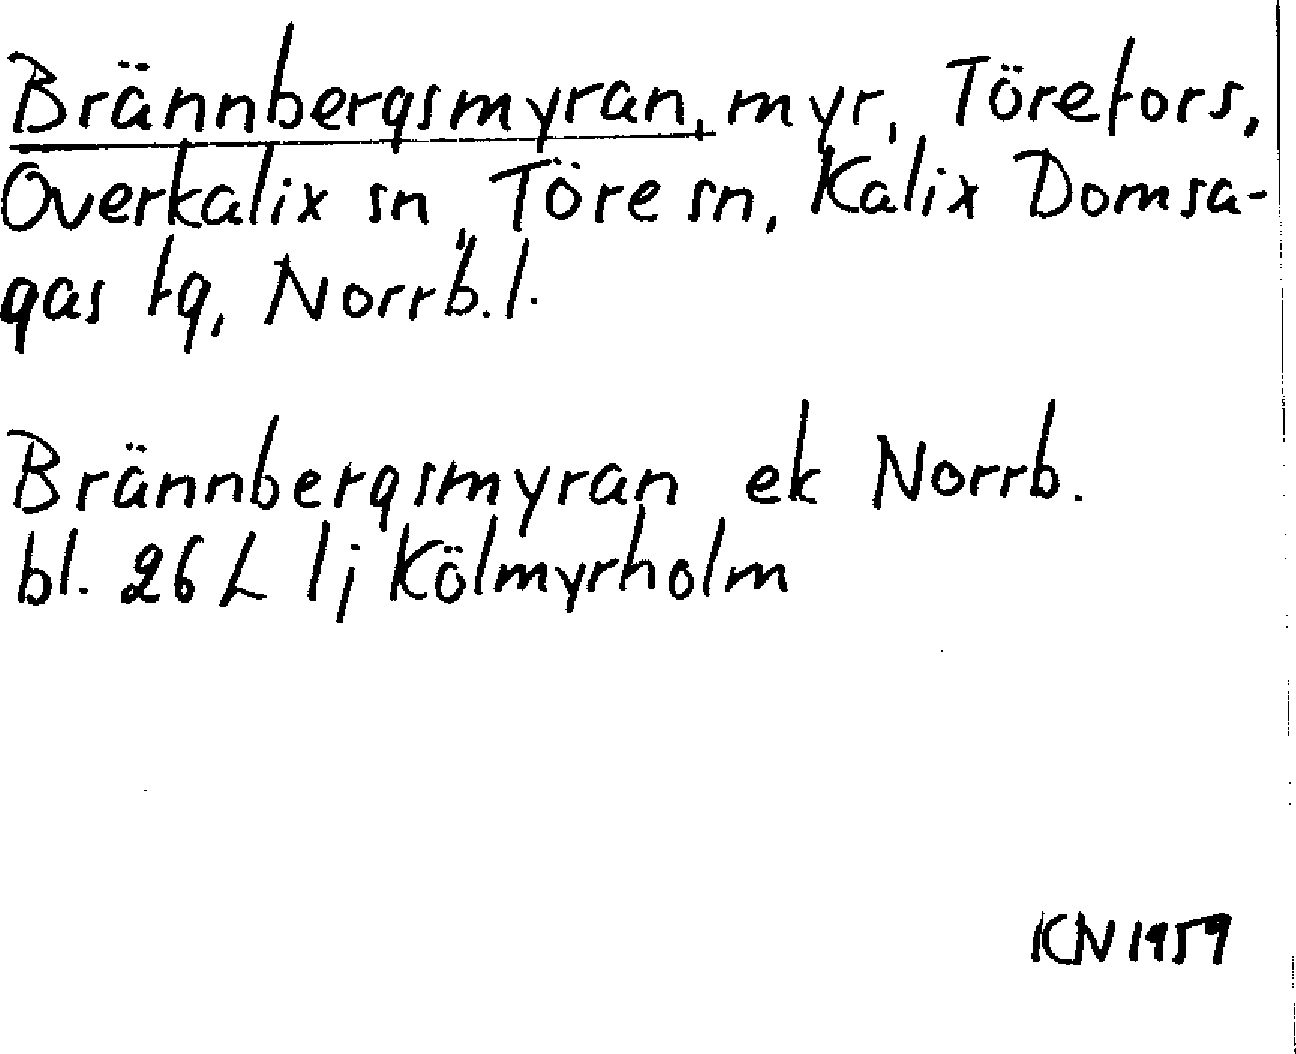 Brännbergsmyran, myr, Törefors,
Överkalix sn, Töre sn, Kalix Domsa-
gas tg, Norrb. l.
Brännbergsmyran ek Norrb.
bl. 26 L lj Kölmyrholm
KN 1959